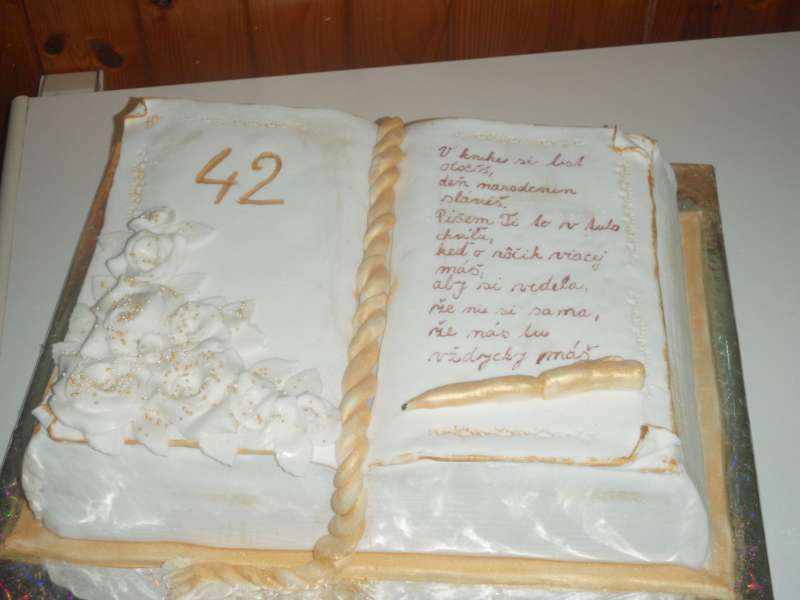 42
V knihe si list
otočíš,
deň narodenin
slávíš.
Píšem Ti to v tuto
chvíľu,
keď o rôčik viacej
máš,
aby si vedela,
že nie si sama,
že nás tu
vždycky máš